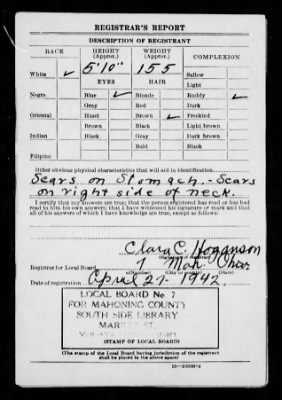 REGISTRAR'S REPORT
DESCRIPTION OF REGISTRANT
RACE
HEIGHT (Approx.)
WEIGHT (Approx.)
COMPLEXION
White ✓
5'10"
155
Sallow
EYES
HAIR
Light
Negro
Blue ✓
Blonde
Ruddy ✓
Gray
Red
Dark
Oriental
Hazel
Brown ✓
Freckled
Brown
Black
Light brown
Indian
Black
Gray
Dark brown
Bald
Black
Filipino
Other obvious physical characteristics that will aid in identification
Scars on Stomach. - Scars
on right side of neck.
I certify that my answers are true; that the person registered has read or has had
read to him his own answers; that I have witnessed his signature or mark and that
all of his answers of which I have knowledge are true, except as follows:
Clara C. Hogganson
Registrar for Local Board 7 Mah. Ohio
Date of registration April 27-1942
LOCAL BOARD No 7
FOR MAHONING COUNTY
SOUTH SIDE LIBRARY
(STAMP OF LOCAL BOARD)
(The stamp of the Local Board having jurisdiction of the registrant
shall be placed in the above space.)